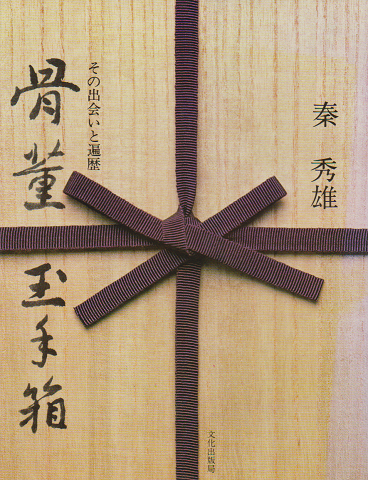 秦 秀雄
その出会いと遍歴
骨董玉手箱
文化出版局